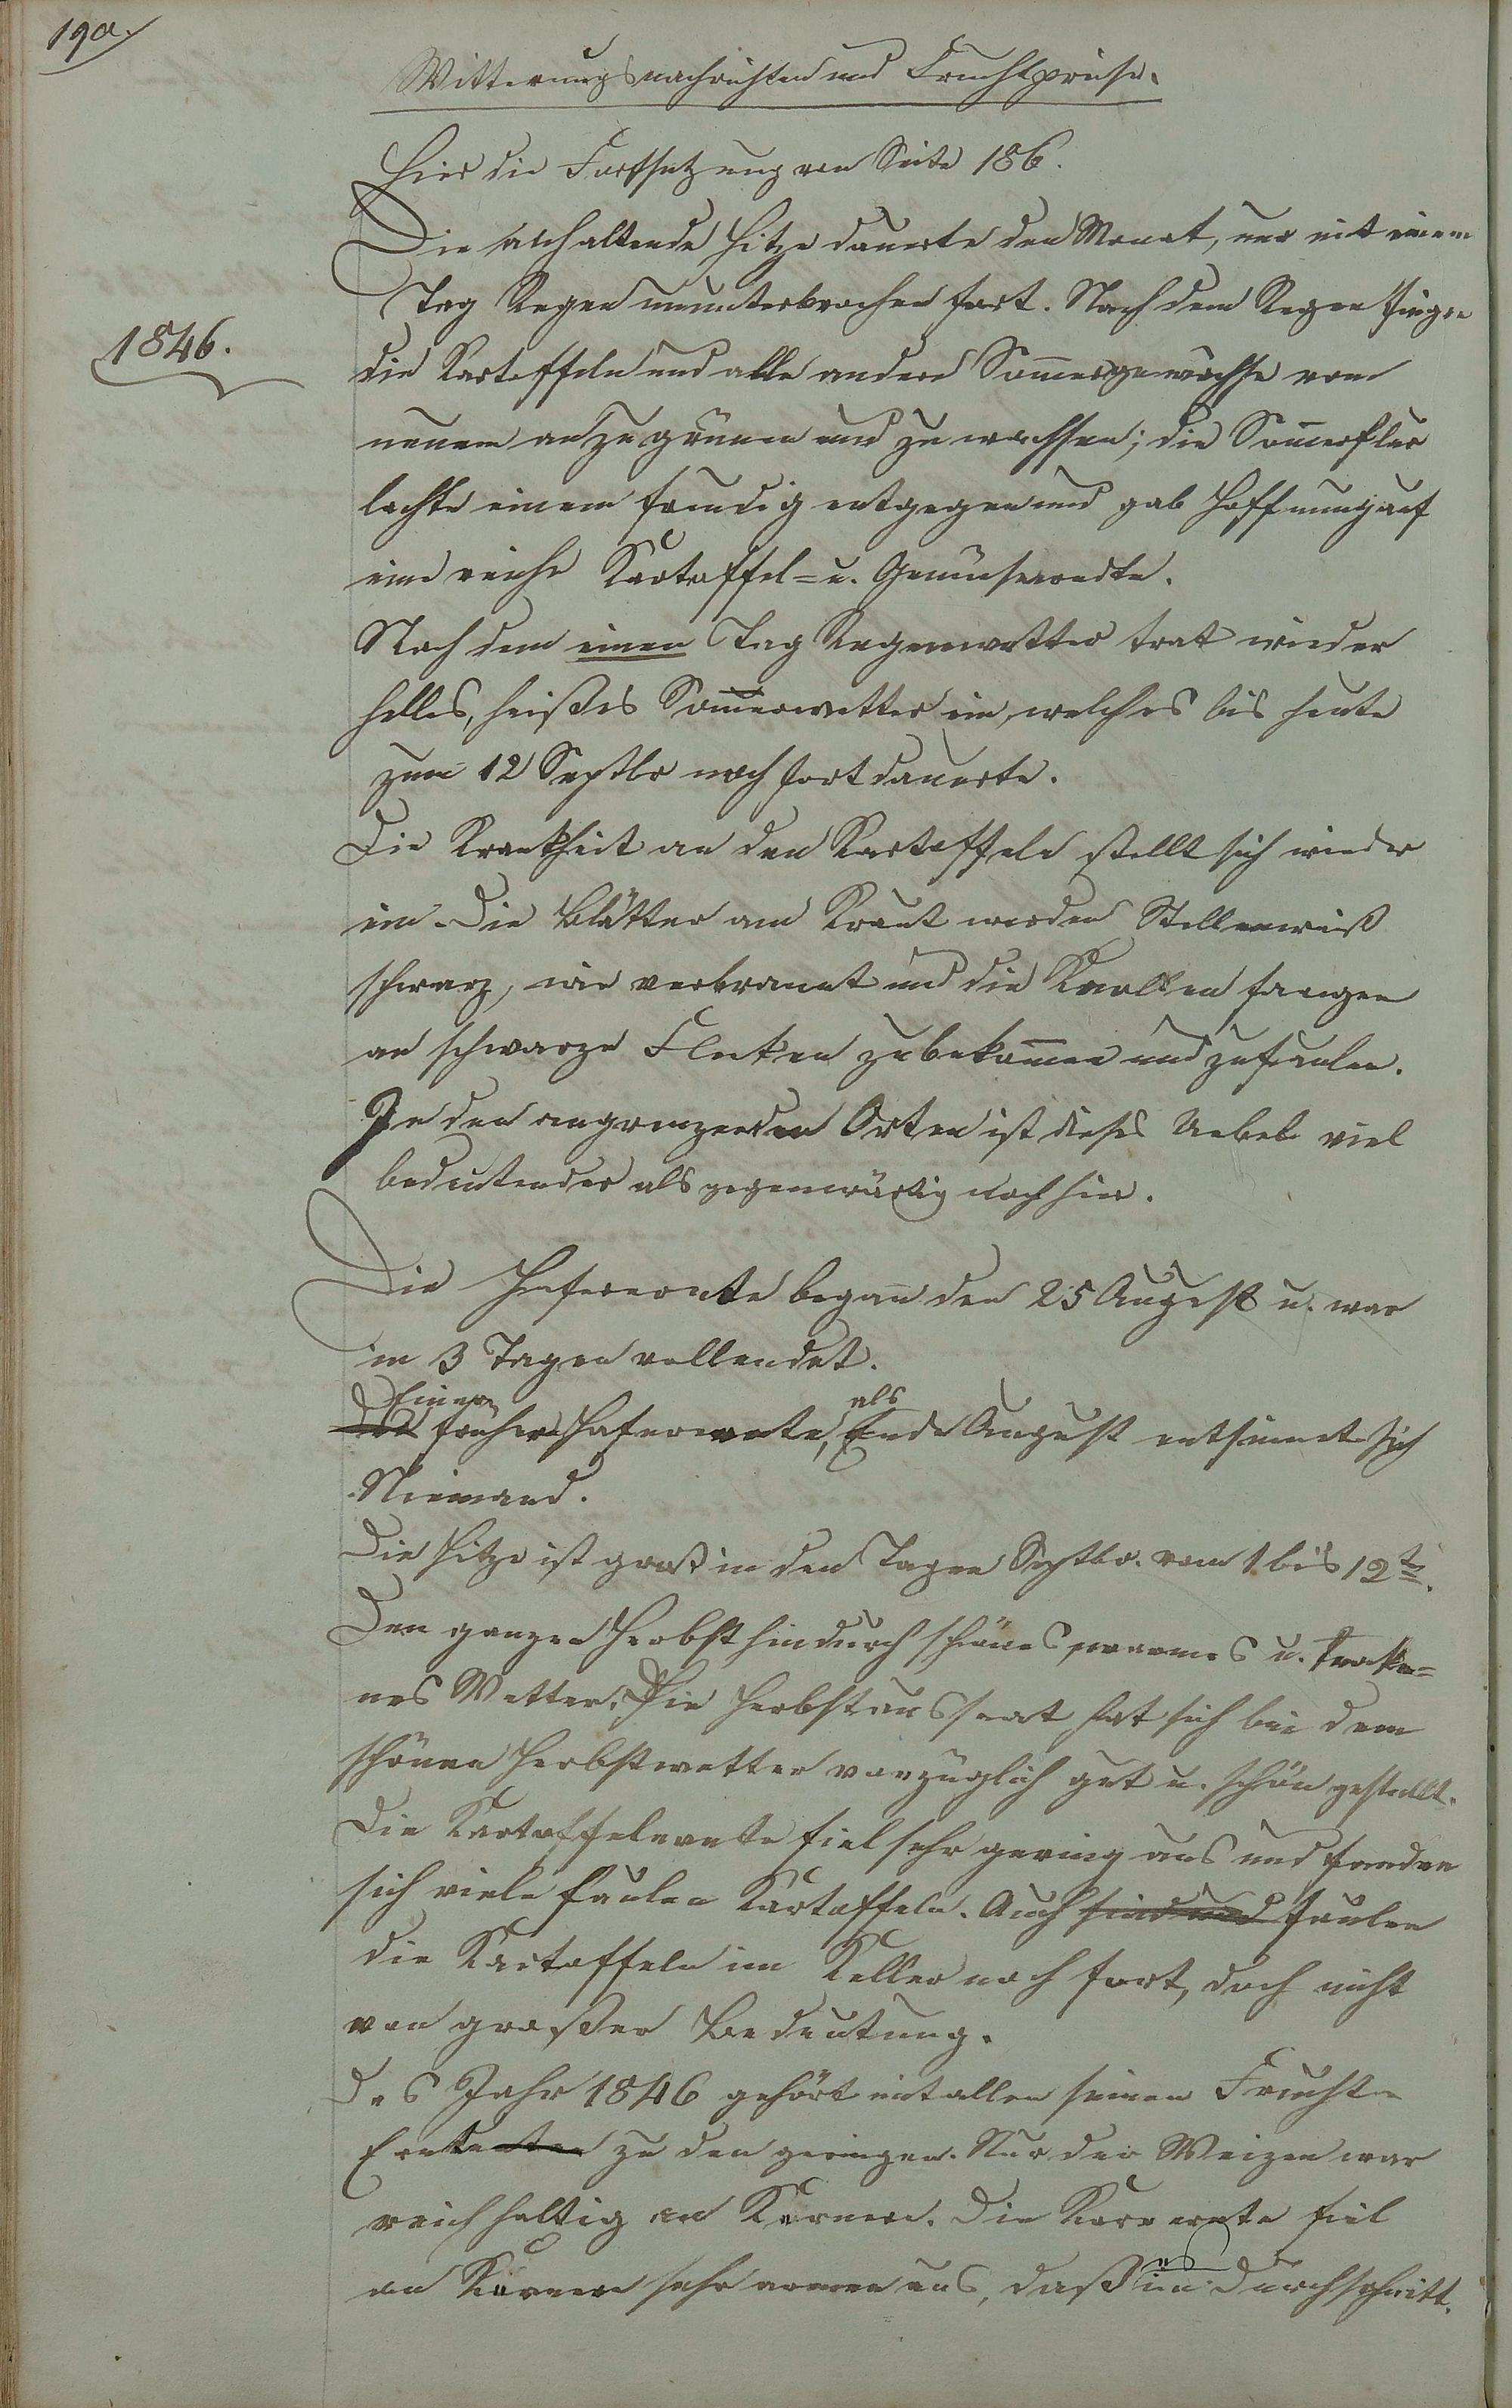 190.
Witterungsnachrichten und Fruchtpreise.
Hier die Fortsetzung von Seite 186.
Die anhaltende Hitze dauerte den Monat, nur mit einem
Tag Regen ununterbrochen fort. Nach dem Regen fingen
1846.
die Kartoffeln und alle andere Som̄ergewächse vom
neuem an zu grünen und zu wachsen; die Som̄erflur
lachte einem freudig entgegen und gab Hoffnung auf
eine reiche Kartoffel= u. Gemüseerndte.
Nach dem einen Tag Regenwetter trat wieder
helles, heißes Som̄erwetter ein, welches bis heute
zum 12 Septbr noch fortdauerte.
Die Krankheit an den Kartoffeln stellt sich wieder
ein. Die Blätter am Kraut werden Stellenweiß
schwarz, wie verbrannt und die Knollen fangen
an schwarze Flecken zubekom̄en und zufaulen.
In den angrenzenden Orten ist dieses Uebel viel
bedeutender als gegenwärtig noch hier.
Die Haferernte began̄ den 25 August u. war
in 3 Tagen vollendet.
Einer früheren Haferernte, als Ende August entsinnt sich
Niemand.
Die Hitze ist groß in den Tagen Septbr. vom 1 bis 12t.
Den ganzen Herbst hindurch schönes warmes u. trocke=
nes Wetter. Die Herbstaussaat hat sich bei dem
schönen Herbstwetter vorzüglich gut u. schön gestellt.
Die Kartoffelernte fiel sehr gering aus und fanden
sich viele faulen Kartoffeln. Auch sind und faulen
die Kartoffeln im Keller noch fort, doch nicht
von großer Bedeutung.
Das Jahr 1846 gehört mit allen seinen Frucht=
Ernten zu den geringen. Nur der Weizen war
reichhaltig an Körner. Die Kornernte fiel
an Körner sehr arm aus, daß es im Durchschnitt.